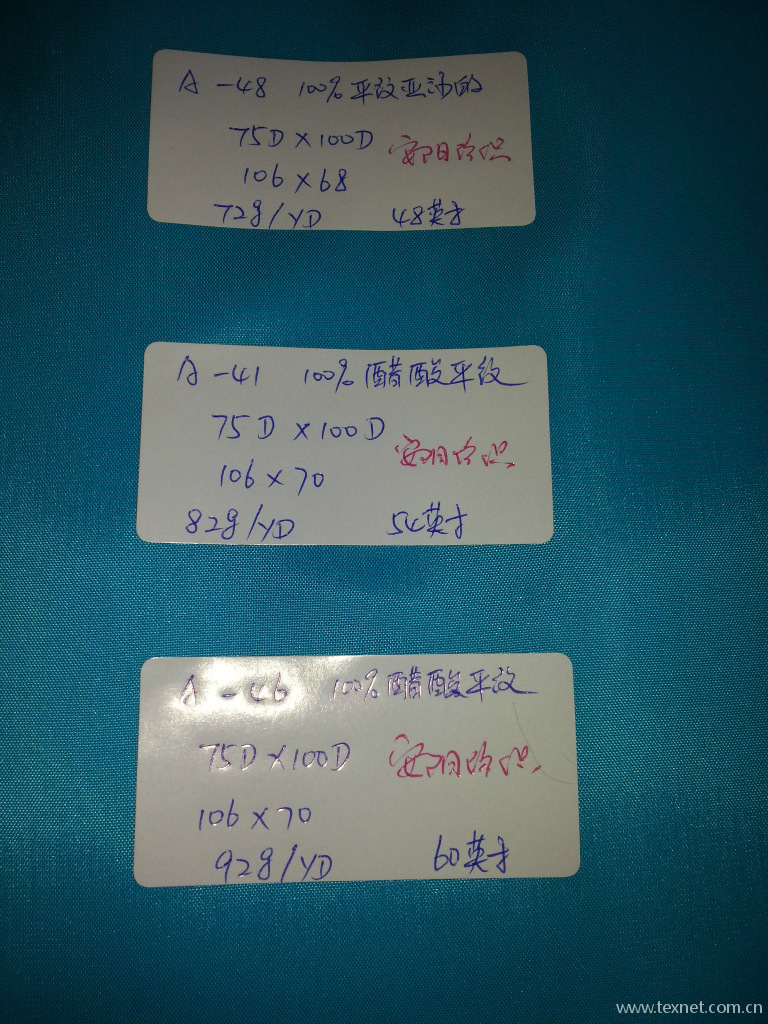 A-48 100%平纹亚沙的
75D×100D
106×68
72g/YD 48英才
A-41 100%醋酸平纹
75D×100D
106×70
82g/YD 54英才
A-46 100%醋酸平纹
75D×100D
106×70
92g/YD 60英才
www.texnet.com.cn